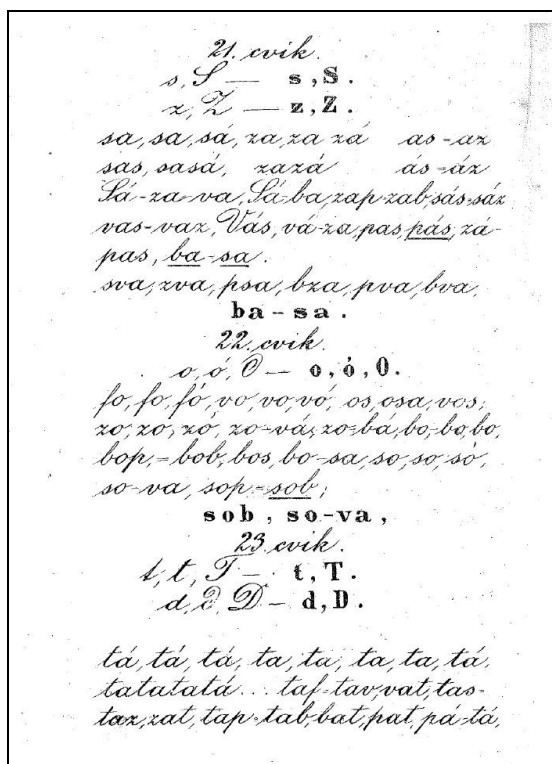 21. cvik.
s, S — s, S.
z, Z — z, Z.
sa, sa, sá, za, za zá as-az
sas, sasá, zazá ás-áz
Sá-za-va, Sá-ba, zap-zab, sás-sáz
vas-vaz, Vás, vá-za, pas, pás, zá-
pas, ba-sa.
sva, zva, psa, bza, pva, bva,
ba-sa.
22. cvik.
o, ó, O — o, ó, O.
fo, fo, fó, vo, vo, vó, os, osa, vos;
zo, zo, zó, zo-vá, zo-bá, bo, bo, bo,
bop,-bob, bos, bo-sa, so, so, só,
so-va, sop-sob;
sob, so-va,
23. cvik.
t, t, T — t, T.
d, ∂, D — d, D.
tá, tá, tá, ta, ta, ta, ta, tá,
tatatatá... taf-tav, vat, tas-
taz, zat, tap-tab, bat, pat, pá-tá,